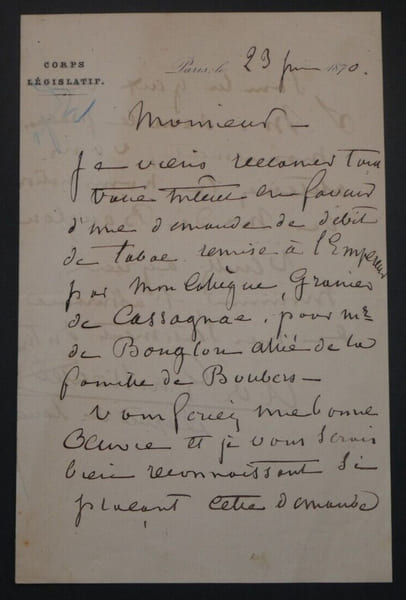 CORPS
LÉGISLATIF.
Paris, le 23 juin 1870.
Monsieur
Je viens reclamer tout
votre intérêt en faveur
d'une demande de debit
de tabac remise à l'Empereur
par mon Collègue, Granier
de Cassagnac, pour mr
de Bouglon allié de la
famille de Boubers —
Vous feriez une bonne
Oeuvre et je vous serais
bien reconnaissant si
plaçant cette demande